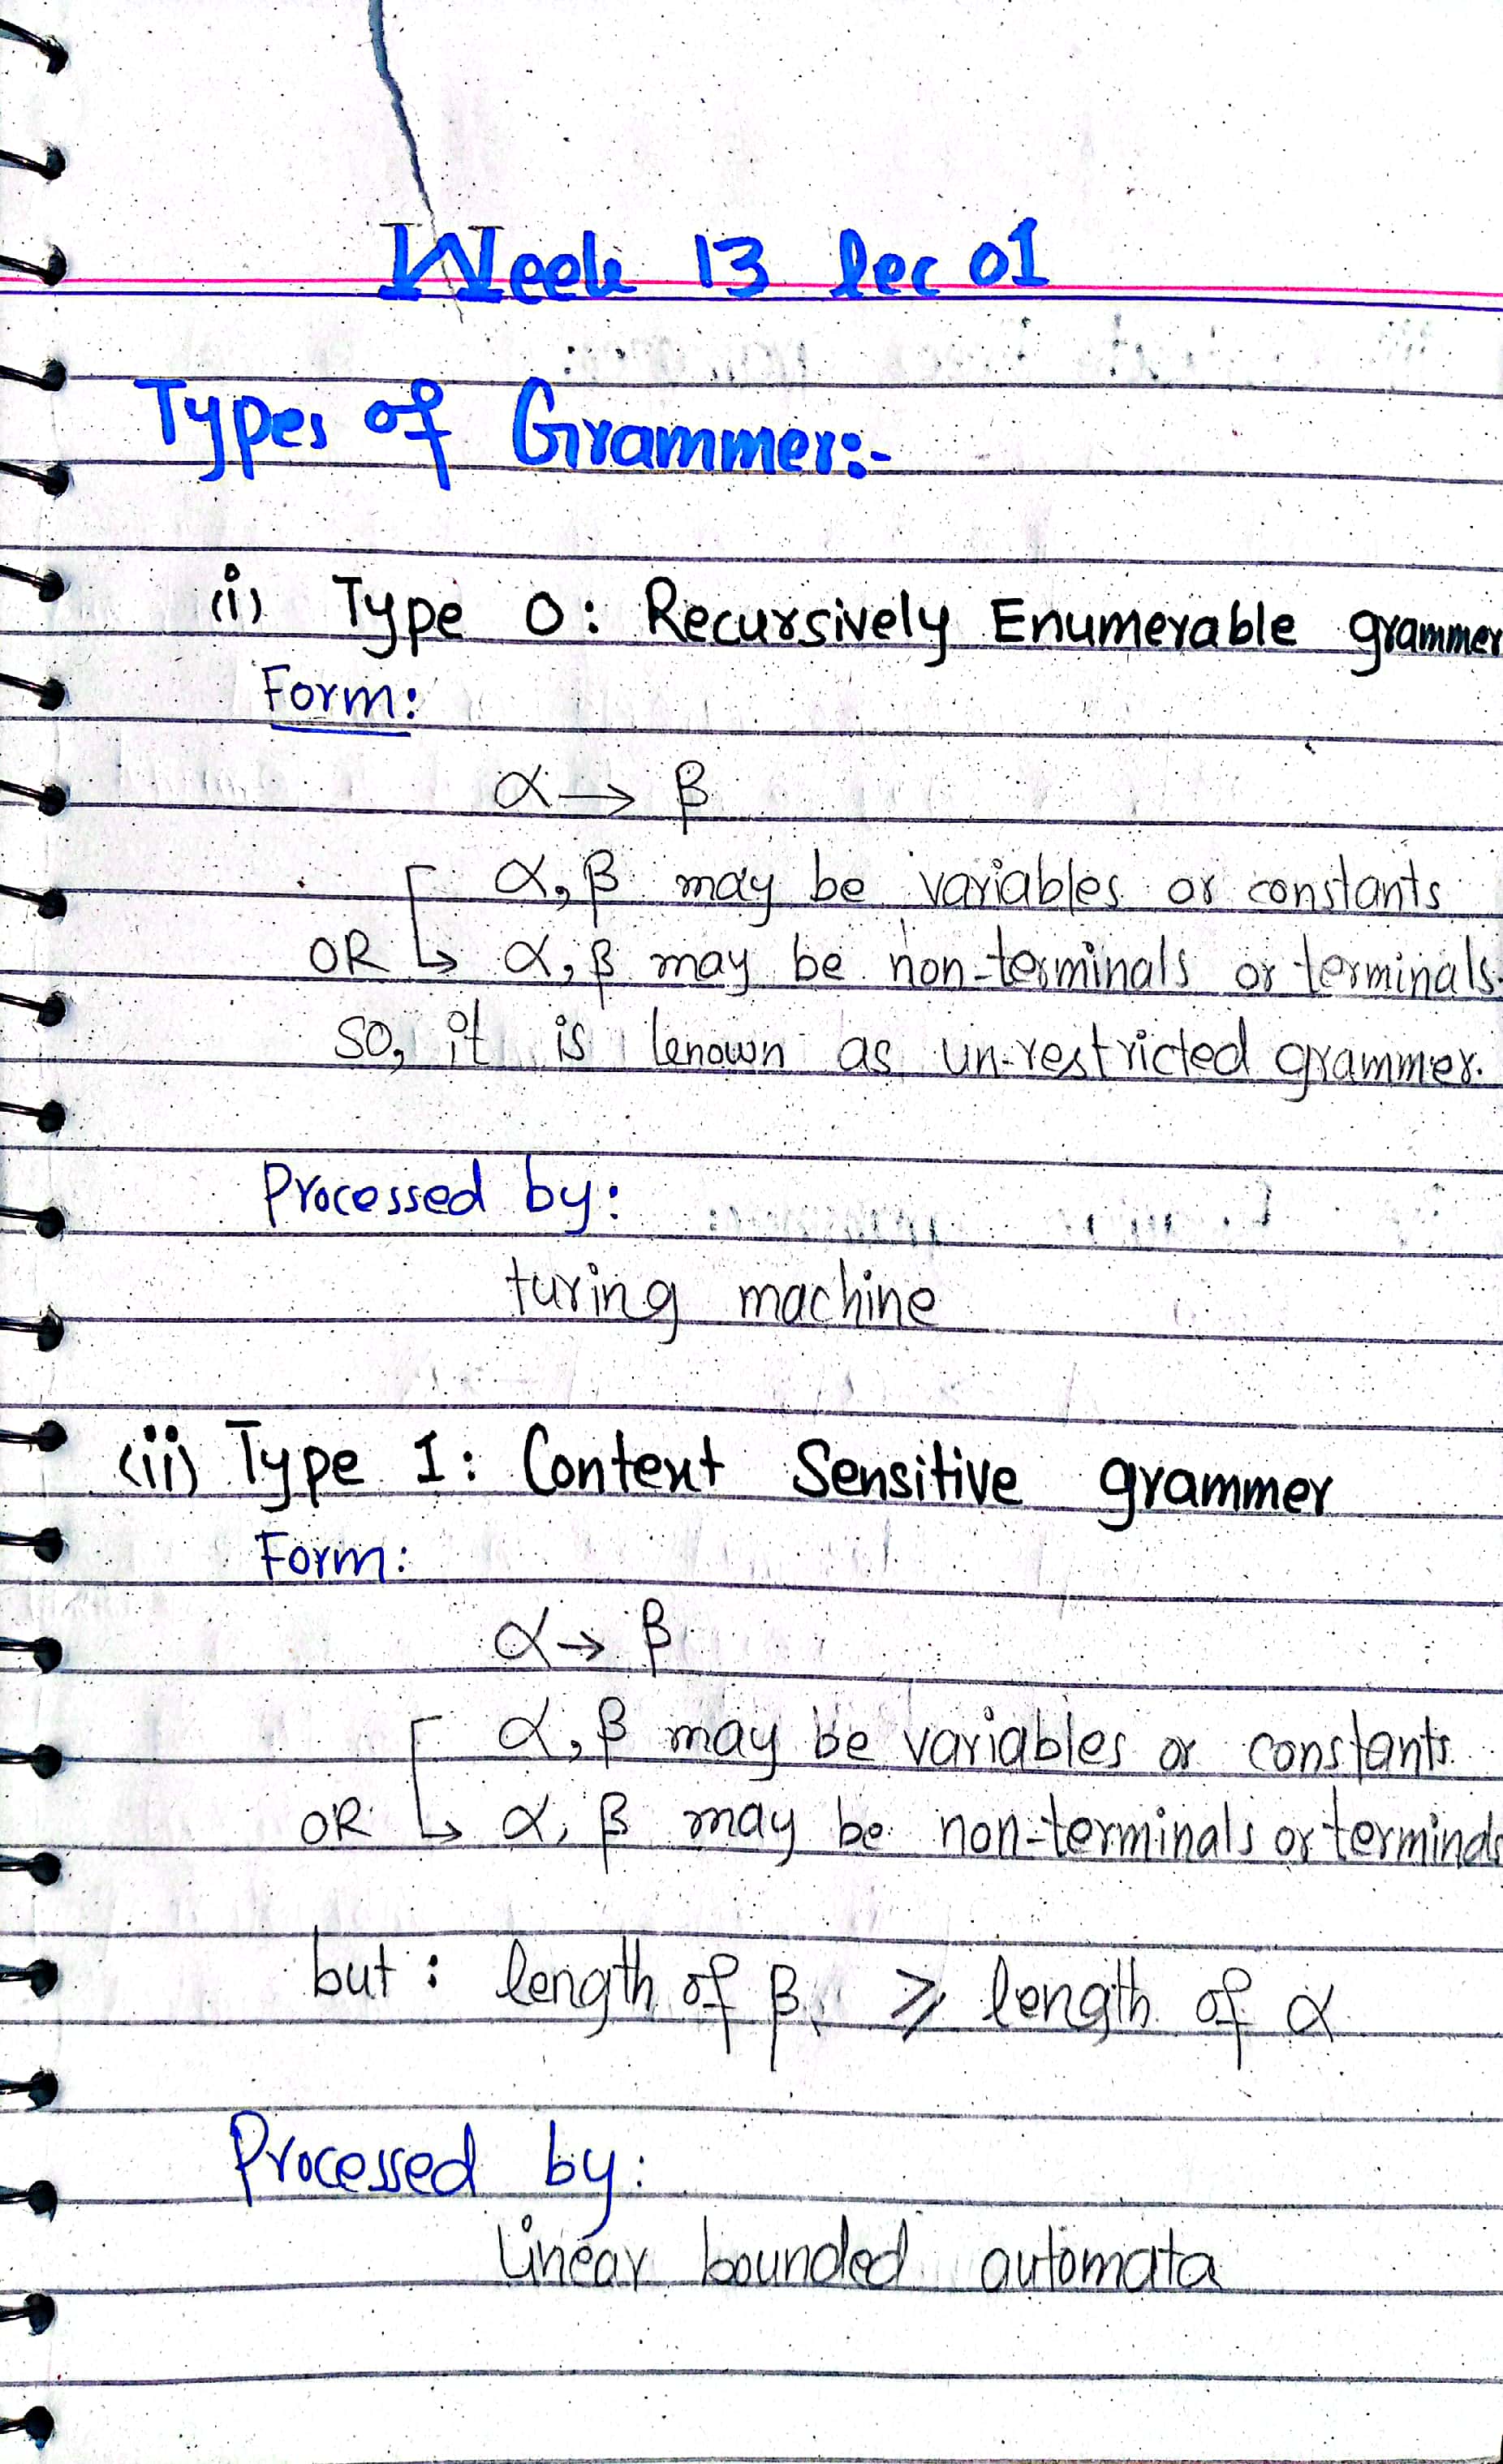 Week 13 lec 01
Types of Grammer:-
(i) Type 0: Recursively Enumerable grammer
Form:
α → β
α, β may be variables or constants
OR ↳ α, β may be non-terminals or terminals.
so, it is known as un-restricted grammer.
Processed by:
turing machine
(ii) Type 1: Context Sensitive grammer
Form:
α → β
α, β may be variables or constants.
OR ↳ α, β may be non-terminals or terminals
but: length of β ⩾ length of α
Processed by:
Linear bounded automata